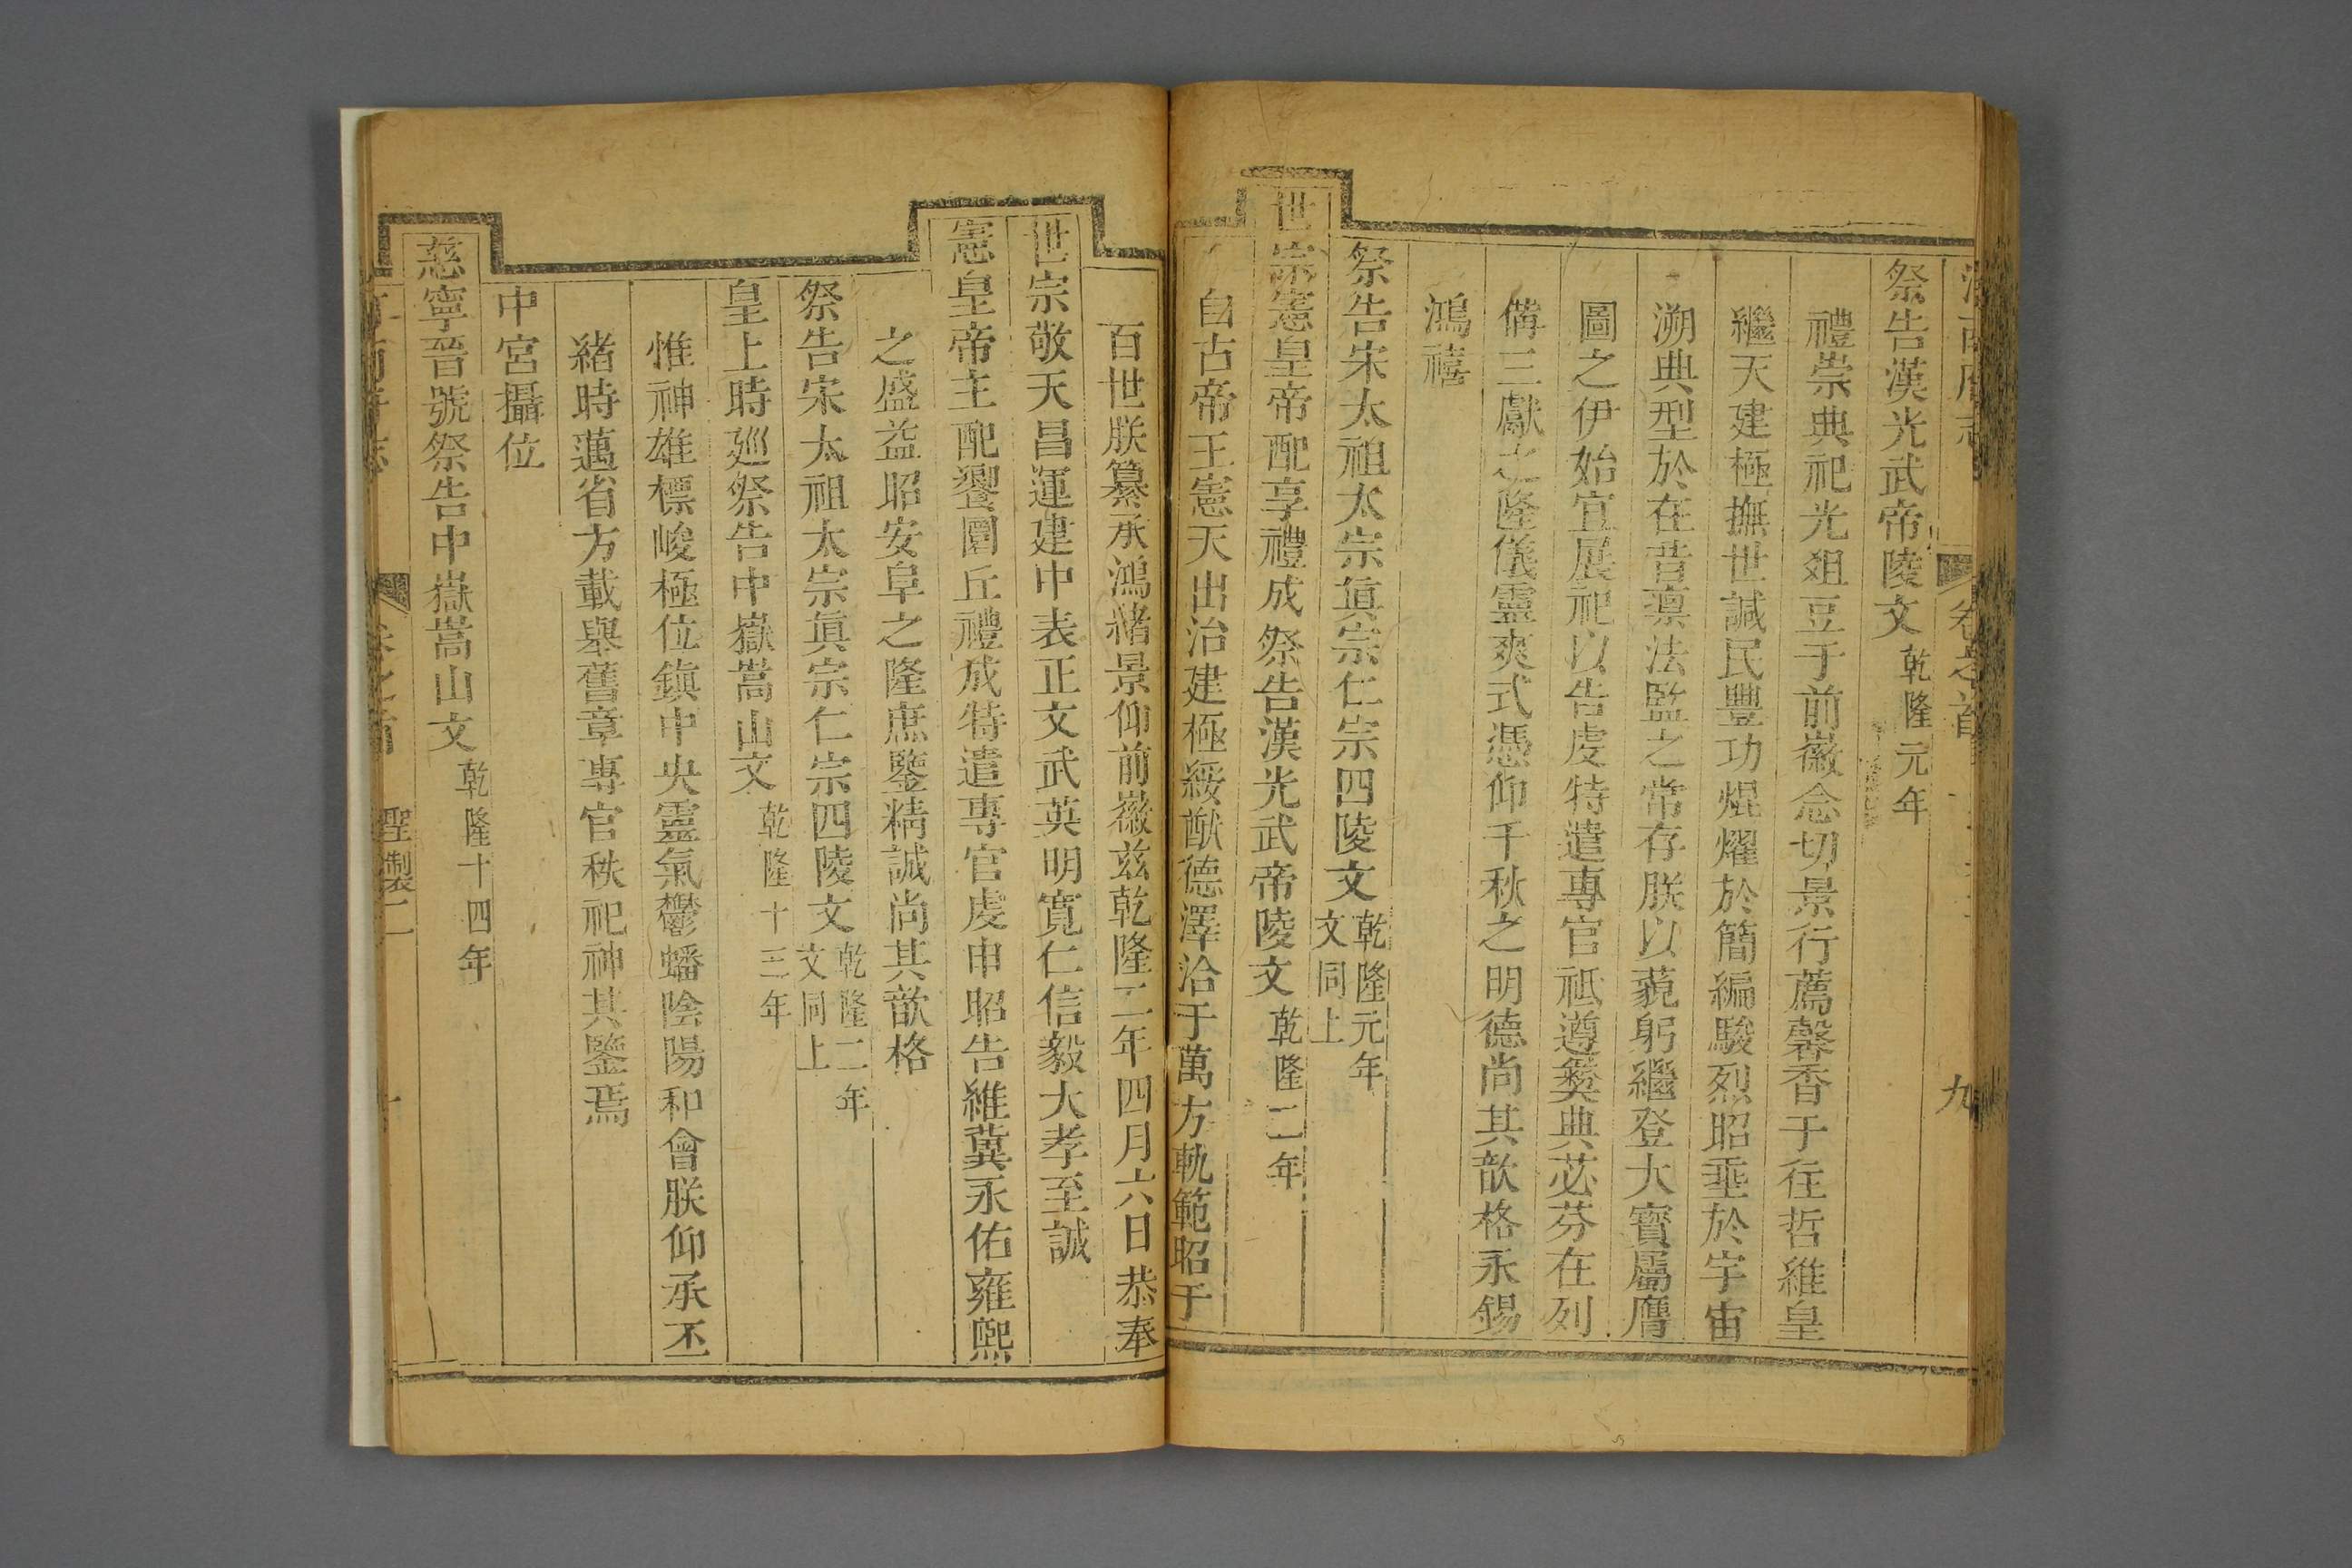 河南府志 卷之首 九
祭告漢光武帝陵文 乾隆元年
禮崇典祀光俎豆于前徽念切景行薦馨香于往哲維皇
繼天建極撫世諴民豐功焜燿於簡編駿烈昭垂於宇宙
溯典型於在昔凛法監之常存朕以藐躬繼登大寶屬膺
圖之伊始宜展祀以告虔特遣專官祗遵彜典苾芬在列
備三獻之隆儀靈爽式憑仰千秋之明德尚其歆格永錫
鴻禧
祭告宋太祖太宗眞宗仁宗四陵文 乾隆元年
文同上
世宗憲皇帝配享禮成祭告漢光武帝陵文 乾隆二年
自古帝王憲天出治建極綏猷德澤洽于萬方軌範昭于
百世朕纂承鴻緒景仰前徽兹乾隆二年四月六日恭奉
世宗敬天昌運建中表正文武英明寬仁信毅大孝至誠
憲皇帝主配饗圜丘禮成特遣專官虔申昭告維冀永佑雍熈
之盛益昭安阜之隆庶鑒精誠尚其歆格
祭告宋太祖太宗眞宗仁宗四陵文 乾隆二年
文同上
皇上時廵祭告中嶽嵩山文 乾隆十三年
惟神雄標峻極位鎮中央靈氣鬱蟠陰陽和會朕仰承丕
緒時邁省方載舉舊章專官秩祀神其鑒焉
中宮攝位
慈寧晉號祭告中嶽嵩山文 乾隆十四年
河南府志 卷之首 聖製二